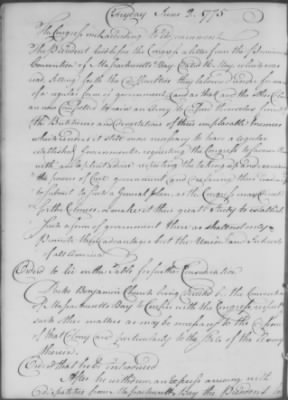 Friday June 2. 1775
The Congress met according to adjournment
The President laid before the Congress a letter from the
Convention of Massachusetts Bay dated the May, which was
read, setting forth the difficulties they labour under for want
of a regular form of government, and as that and the other
are compelled to raise an Army to defend themselves from
the Butcheries and devastations of their implacable enemies
which renders it still more necessary to have a regular
established Government requesting the Congress to favour them
with explicit advice respecting the taking up and
the powers of Civil government and declaring their readiness
to submit to such a General plan as the Congress may direct
for the Colonies, or make it their great Study to establish
such a form of government there as shall not only
their advantage but the Union and Interest
of all America
Ordered to lie on the table for farther Consideration
Benjamin Church being by the Convention
of Massachusetts Bay to Confer with the Congress respect
such other matters as may be necessary to the
of that Colony and particularly to the State of the Army
therein
Ordered that he be introduced
After he withdrew an express arriving with
dispatches from Massachusetts Bay the President